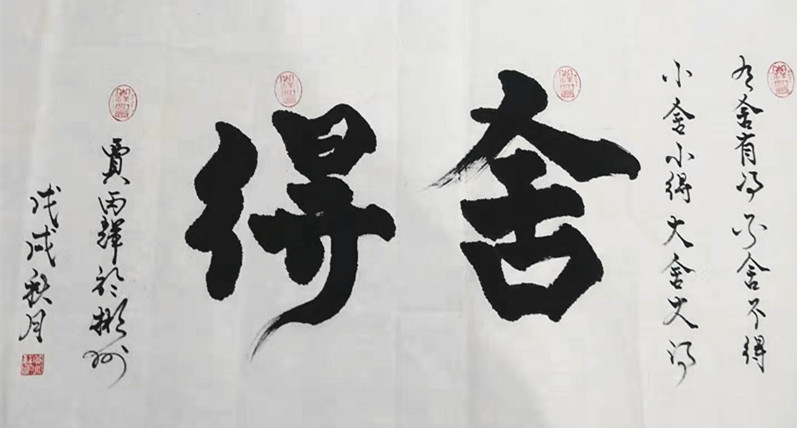 有舍有得不舍不得
小舍小得大舍大得
舍得
贾丙辉於彬州
戊戌秋月